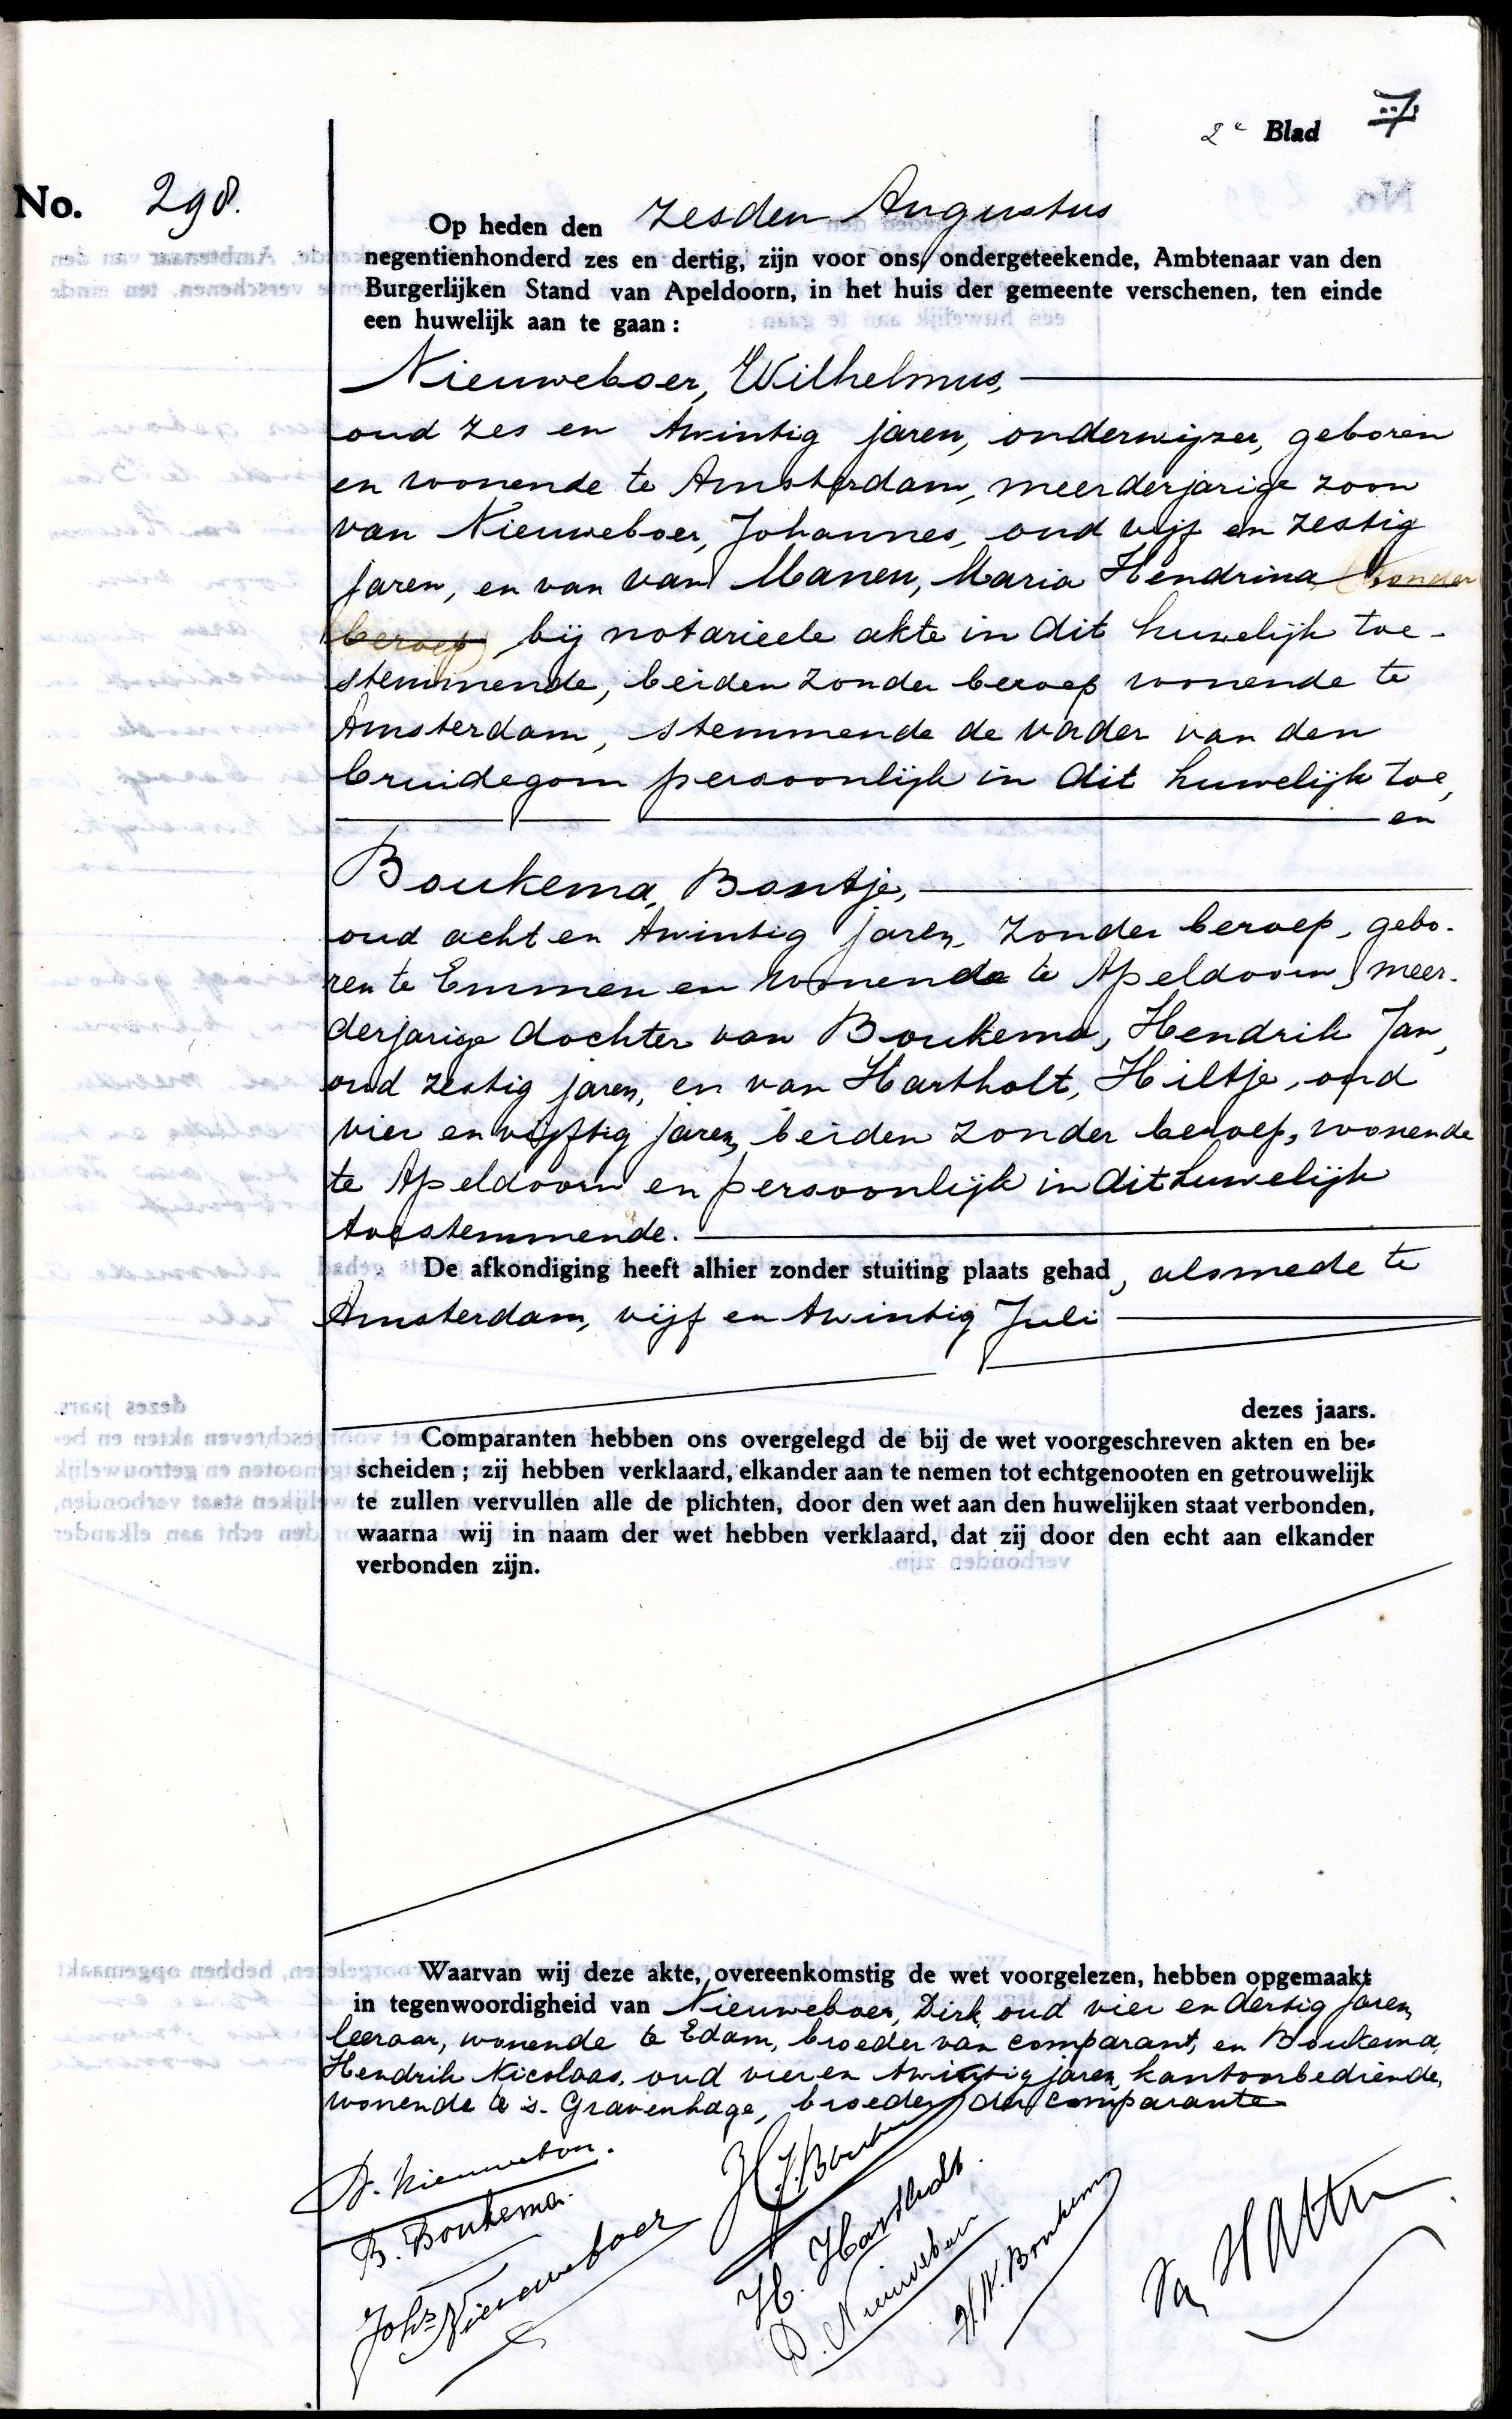 2e Blad 7
No. 298.
Op heden den zesden Augustus
negentienhonderd zes en dertig, zijn voor ons, ondergeteekende, Ambtenaar van den
Burgerlijken Stand van Apeldoorn, in het huis der gemeente verschenen, ten einde
een huwelijk aan te gaan :
Nieuweboer, Wilhelmus,
oud zes en twintig jaren, onderwijzer, geboren
en wonende te Amsterdam, meerderjarige zoon
van Nieuweboer, Johannes, oud vijf en zestig
jaren, en van van Manen, Maria Hendrina, zonder
beroep bij notarieele akte in dit huwelijk toe-
stemmende, beiden zonder beroep wonende te
Amsterdam, stemmende de vader van den
bruidegom persoonlijk in dit huwelijk toe,
en
Boukema, Bontje,
oud acht en twintig jaren, zonder beroep, gebo-
ren te Emmen en wonende te Apeldoorn, meer-
derjarige dochter van Boukema, Hendrik Jan,
oud zestig jaren, en van Hartholt, Hiltje, oud
vier en vijftig jaren, beiden zonder beroep, wonende
te Apeldoorn en persoonlijk in dit huwelijk
toestemmende.
De afkondiging heeft alhier zonder stuiting plaats gehad, alsmede te
Amsterdam, vijf en twintig Juli
dezes jaars.
Comparanten hebben ons overgelegd de bij de wet voorgeschreven akten en be-
scheiden ; zij hebben verklaard, elkander aan te nemen tot echtgenooten en getrouwelijk
te zullen vervullen alle de plichten, door den wet aan den huwelijken staat verbonden,
waarna wij in naam der wet hebben verklaard, dat zij door den echt aan elkander
verbonden zijn.
Waarvan wij deze akte, overeenkomstig de wet voorgelezen, hebben opgemaakt
in tegenwoordigheid van Nieuweboer, Dirk, oud vier en dertig jaren,
leeraar, wonende te Edam, broeder van comparant, en Boukema,
Hendrik Nicolaas, oud vier en twintig jaren, kantoorbediende,
wonende te 's-Gravenhage, broeder der comparante
Nieuweboer.
B. Boukema.
Johs Nieuweboer
H.J. Boukema
H. Hartholt.
D. Nieuweboer
H.N. Boukema